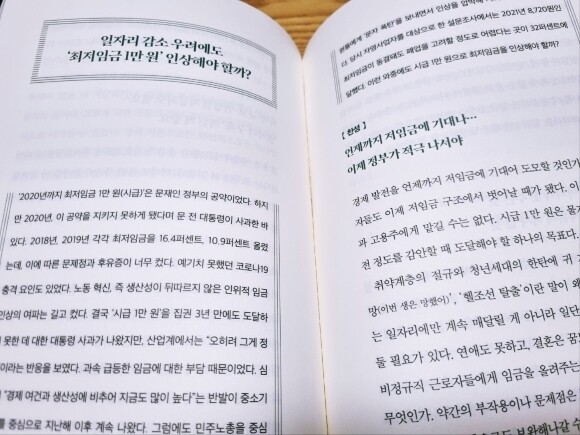 일자리 감소 우려에도
‘최저임금 1만 원’ 인상해야 할까?
‘2020년까지 최저임금 1만 원(시급)’은 문재인 정부의 공약이었다. 하지
만 2020년, 이 공약을 지키지 못하게 됐다며 문 전 대통령이 사과한 바
있다. 2018년, 2019년 각각 최저임금을 16.4퍼센트, 10.9퍼센트 올렸
는데, 이에 따른 문제점과 후유증이 너무 컸다. 예기치 못했던 코로나19
충격 요인도 있었다. 노동 혁신, 즉 생산성이 뒤따르지 않은 인위적 임금
인상의 여파는 길고 컸다. 결국 ‘시급 1만 원’을 집권 3년 만에도 도달하
못한 데 대한 대통령 사과가 나왔지만, 산업계에서는 “오히려 그게 정
이라는 반응을 보였다. 과속 급등한 임금에 대한 부담 때문이었다. 심
“경제 여건과 생산성에 비추어 지금도 많이 높다”는 반발이 중소기
를 중심으로 지난해 이후 계속 나왔다. 그럼에도 민주노총을 중심
원들에게 ‘문자 폭탄’을 보내면서 인상을 압박
다. 당시 자영사업자를 대상으로 한 설문조사에서는 2021년 8,720원인
최저임금이 동결돼도 폐업을 고려할 정도로 어렵다는 곳이 32퍼센트에
달했다. 이런 와중에도 시급 1만 원으로 최저임금을 인상해야 할까?
[ 찬성 ]
언제까지 저임금에 기대나…
이제 정부가 적극 나서야
경제 발전을 언제까지 저임금에 기대어 도모할 것인가
자들도 이제 저임금 구조에서 벗어날 때가 됐다. 이
과 고용주에게 맡길 수는 없다. 시급 1만 원은 몇
전 정도를 감안할 때 도달해야 할 하나의 목표다.
취약계층의 절규와 청년세대의 한탄에 귀
망(이번 생은 망했어)’, ‘헬조선 탈출’이란 말이 왜
는 일자리에만 계속 매달릴 게 아니라 일단
둘 필요가 있다. 연애도 못하고, 결혼은 꿈
비정규직 근로자들에게 임금을 올려주는
무엇인가. 약간의 부작용이나 문제점은
로도 보완해나갈 수